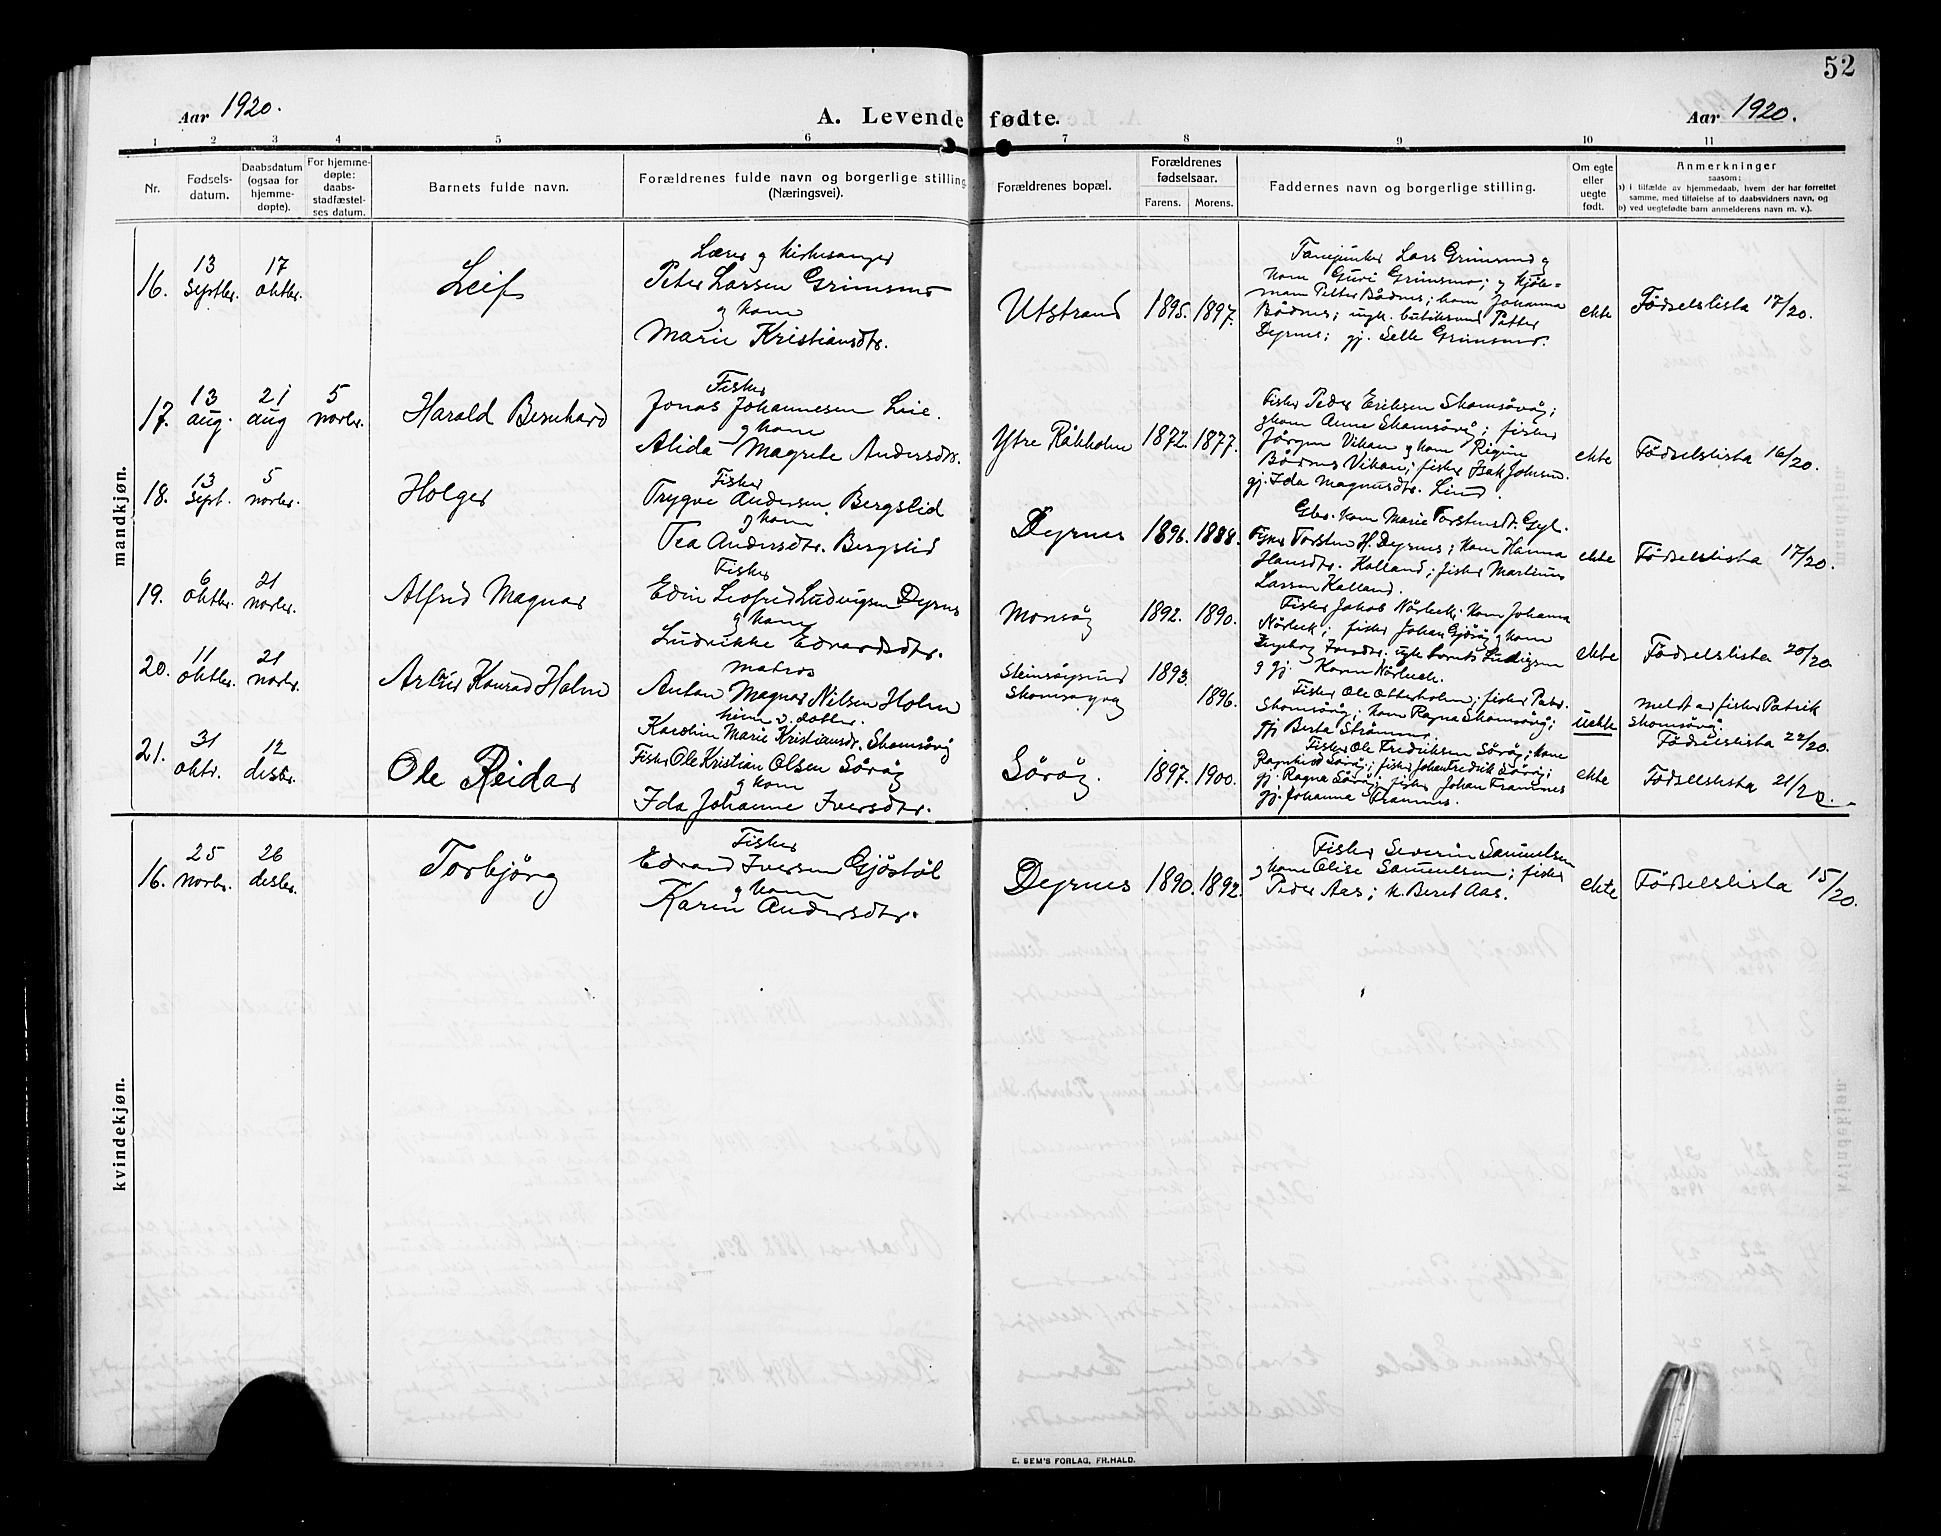 52
Aar 1920. A. Levende fødte. Aar 1920.
1 2 3 4 5 6 7 8 9 10 11
Nr.
Fødsels-
datum.
Daabsdatum
(ogsaa for
hjemme-
døpte).
For hjemme-
døpte:
daabs-
stadfæstel-
ses datum.
Barnets fulde navn.
Forældrenes fulde navn og borgerlige stilling
(Næringsvei).
Forældrenes bopæl.
Forældrenes
fødselsaar.
Farens. Morens.
Faddernes navn og borgerlige stilling.
Om egte
eller
uegte
født.
Anmerkninger
saasom:
a) i tilfælde av hjemmedaab, hvem der har forrettet
samme, med tilføielse af to daabsvidners navn, og
b) ved uegtefødte barn anmelderens navn m. v.).
mandkjøn.
16.
13
septbr.
17
oktbr.
Leif
Lærer og kirkesanger
Peter Larsen Grimsmo
og kone
Marie Kristiansdtr.
Utstrand
1895. 1897.
Lars Grimsmo og
kone Guri Grimsmo;
Petter Bådnes; kone Johanna
Bådnes; ugk. Petter
Dyrnes; gj. Grimsmo.
ekte
Födselslista 17/20.
17.
13
aug.
21
aug
5
novbr.
Harald Bernhard
Fisker
Jonas Johannesen Lie.
og kone
Alida Magrete Andersdtr.
Ytre Råkholm
1872. 1877.
Fisker Peder Eriksen Skomsövåg;
og kone Anne Skomsövåg; fisker
Jörgen Vikan og kone
Vikan; fisker Isak Johnsen
gj. Ida Magnusdtr. Lund.
ekte
Födselslista 16/20.
18.
13
sept.
5
novbr.
Holger
Fisker
Trygve Andersen Bergslid
og kone
Tea Andersdtr. Bergslid
Dyrnes
1896. 1888.
Gbr. kone Marie Torstensdtr.
Fisker Torsten H. Dyrnes; kone Hanna
Hansdtr. Kalland; fisker Martinus
Larsen Kalland.
ekte
Födselslista 17/20.
19.
6
oktbr.
21
novbr.
Alfred Magnar
Fisker
Edin Leofred Ludvigsen Dyrnes
og kone
Ludvikke Edvardsdtr.
Monsög
1892. 1890.
Fisker Jakob Nörbeck; kone Johanna
Nörbeck; fisker Johan og kone
Ingeborg
og gj. Karen Nörbeck.
ekte
Födselslista 20/20
20.
11
oktbr.
21
novbr.
Artur Konrad Holm
matros
Anton Magnar Nilsen Holm
heim v. datter.
Karolin Marie Kristiansdr. Skomsövåg
Steinsöysund
1893.
1896.
Fisker Ole Otterholm; fisker Petr.
Skomsövåg; kone Ragna Skomsövåg;
gj Berta Strömmen.
uekte
meldt av fisker Patrik
Skomsövåg
Födselslista 22/20.
21.
31
oktr.
12
desbr.
Ole Reidar
Fisker Ole Kristian Olsen Söråg
og kone
Ida Johanne Iversdtr.
Söråg.
1897. 1900.
Fisker Ole Fredriksen Söråg; kone
Ragnhild Söråg; fisker Johan Fredrik Söråg;
gj. Ragna Söråg; fisker Johan Framnes
gj. Johanna Framnes.
ekte
Födselslista 21/20.
kvindekjøn.
16.
25
novbr.
26
desbr.
Torbjörg
Fisker
Edvard Iversen Gjöstöl
og kone
Karen Andersdtr.
Dyrnes
1890. 1892.
Fisker Severin Samuelsen
og kone Olise Samuelsen; fisker
Peder Aas; k. Beret Aas.
ekte
Födselslista 15/20.
E. SEM'S FORLAG, FR.HALD.